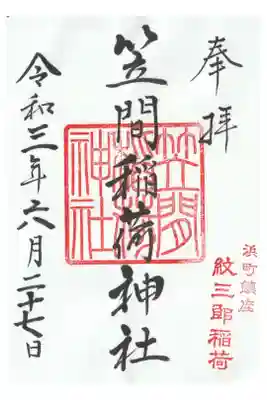 奉拝
浜町鎮座
紋三郎稲荷
笠間稲荷神社
笠間稲荷神社
令和三年六月二十七日